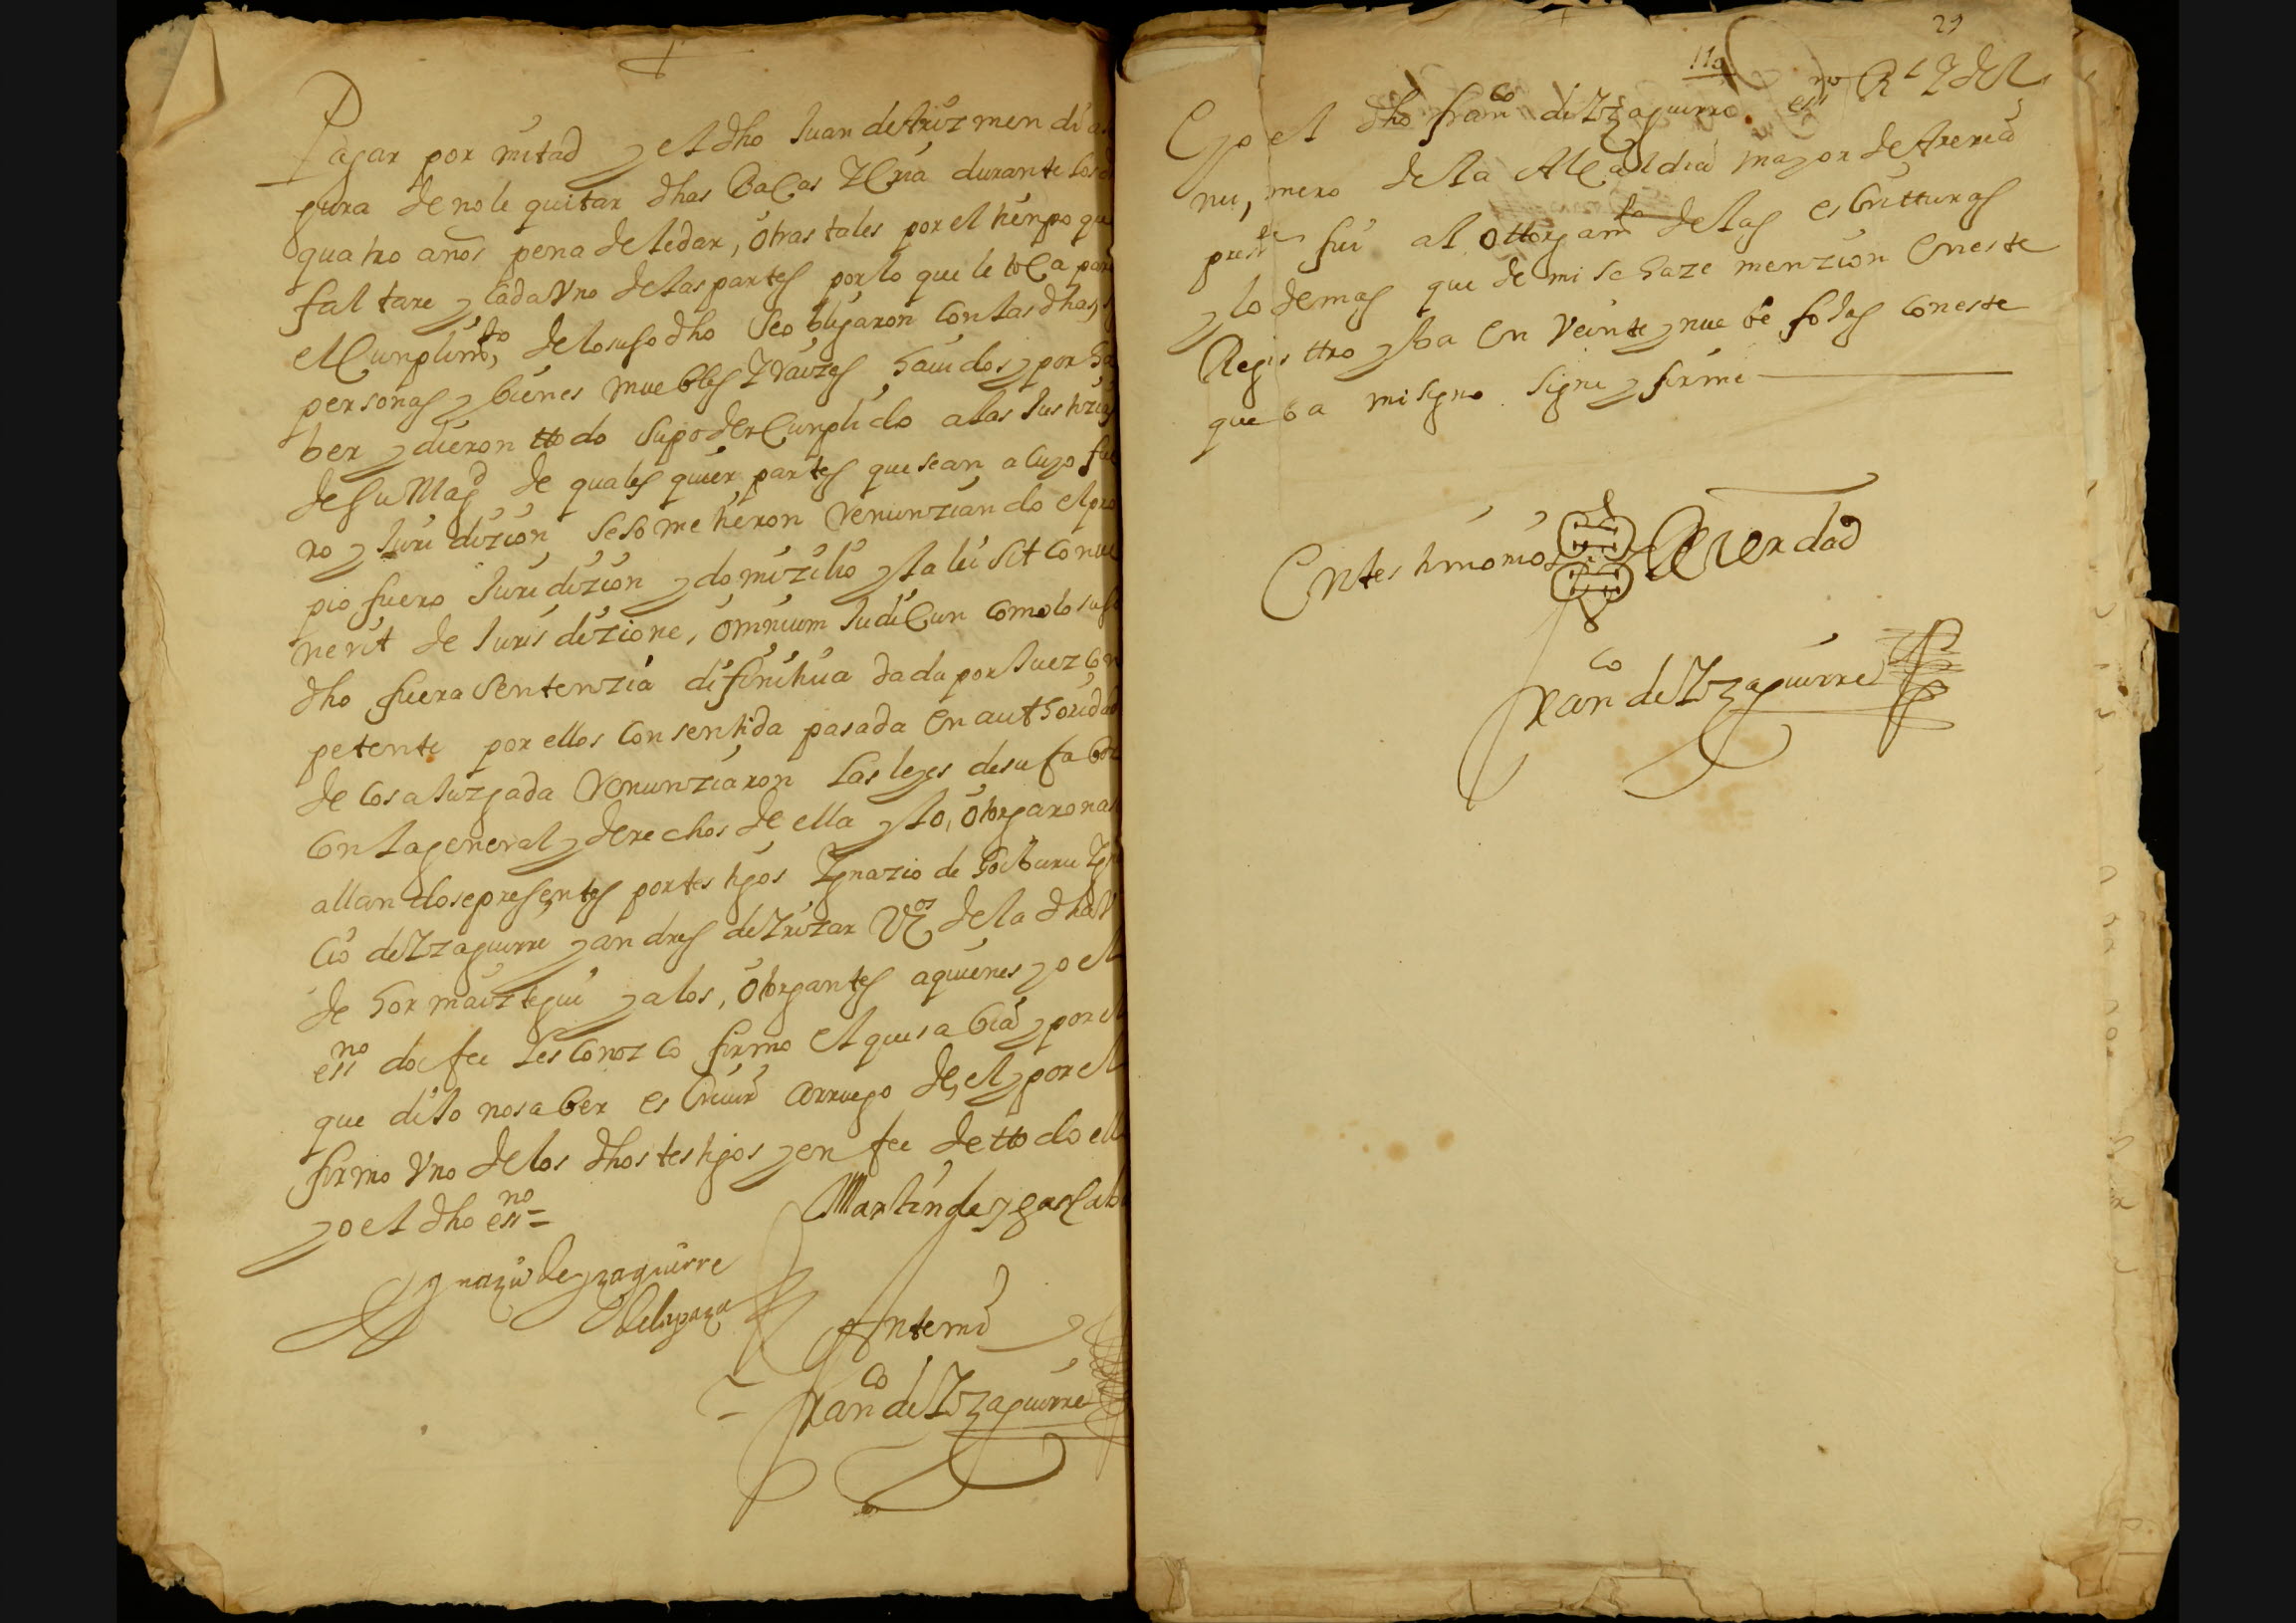 Pagar por mitad y el dho Juan de Arizmendi a
gura de no le quitar dhas Bacas y Cria durante los
quatro años pena de le dar, otras tales por el tienpo que
faltare y cada Vno de las partes por lo que le toca para
el Cunplimto, de lo suso dho se obligaron con las dhas,
personas y bienes muebles y rraizes hauidos y por ha
ber y dieron ttodo su poder Cunplido a las Justizias
de su Magd de quales quier partes que sean a cuyo fue
ro y Juridizion se sometieron renunziando el pro
pio fuero Juridizion y domizilio y la lei sit conue
nerit de Jurisdizione, omnium Judicun como lo suso
dho fuera sentenzia difinitiua dada por Juez con
petente por ellos consentida pasada en authoridad
de cosa Juzgada renunziaron las leyes de su fabor
con la general y derechos de ella y lo, otorgaron a
allandose presentes por testigos Ygnazio de Goiburu Ygn
cio de Yzaguirre y andres de Yrizar Vzos de la dha V
de hormaiztegui y a los, otorgantes a quienes yo el
essno doi fee les conozco firmo el que sabia y por el
que dijo no saber escriuir a rruego de, el y por el
firmo Vno de los dhos testigos y en fee de ttodo ello
yo el dho essno=
Martin de ygarçabal
Ygnazio de yzaguirre
Antemi
Franco de Yzaguirre
29
110
E yo el dho franco de Yzaguirre essno Rl y del
nu, mero de la Alcaldia mayor de Areria
preste fui al ottorgamto de las escritturas
y lo demas que de mi se haze menzion en este
Registtro y ba en veinte y nuebe fojas con este
que ba mi signo signe y firme
En testimonio de Verdad
Franco de Yzaguirre